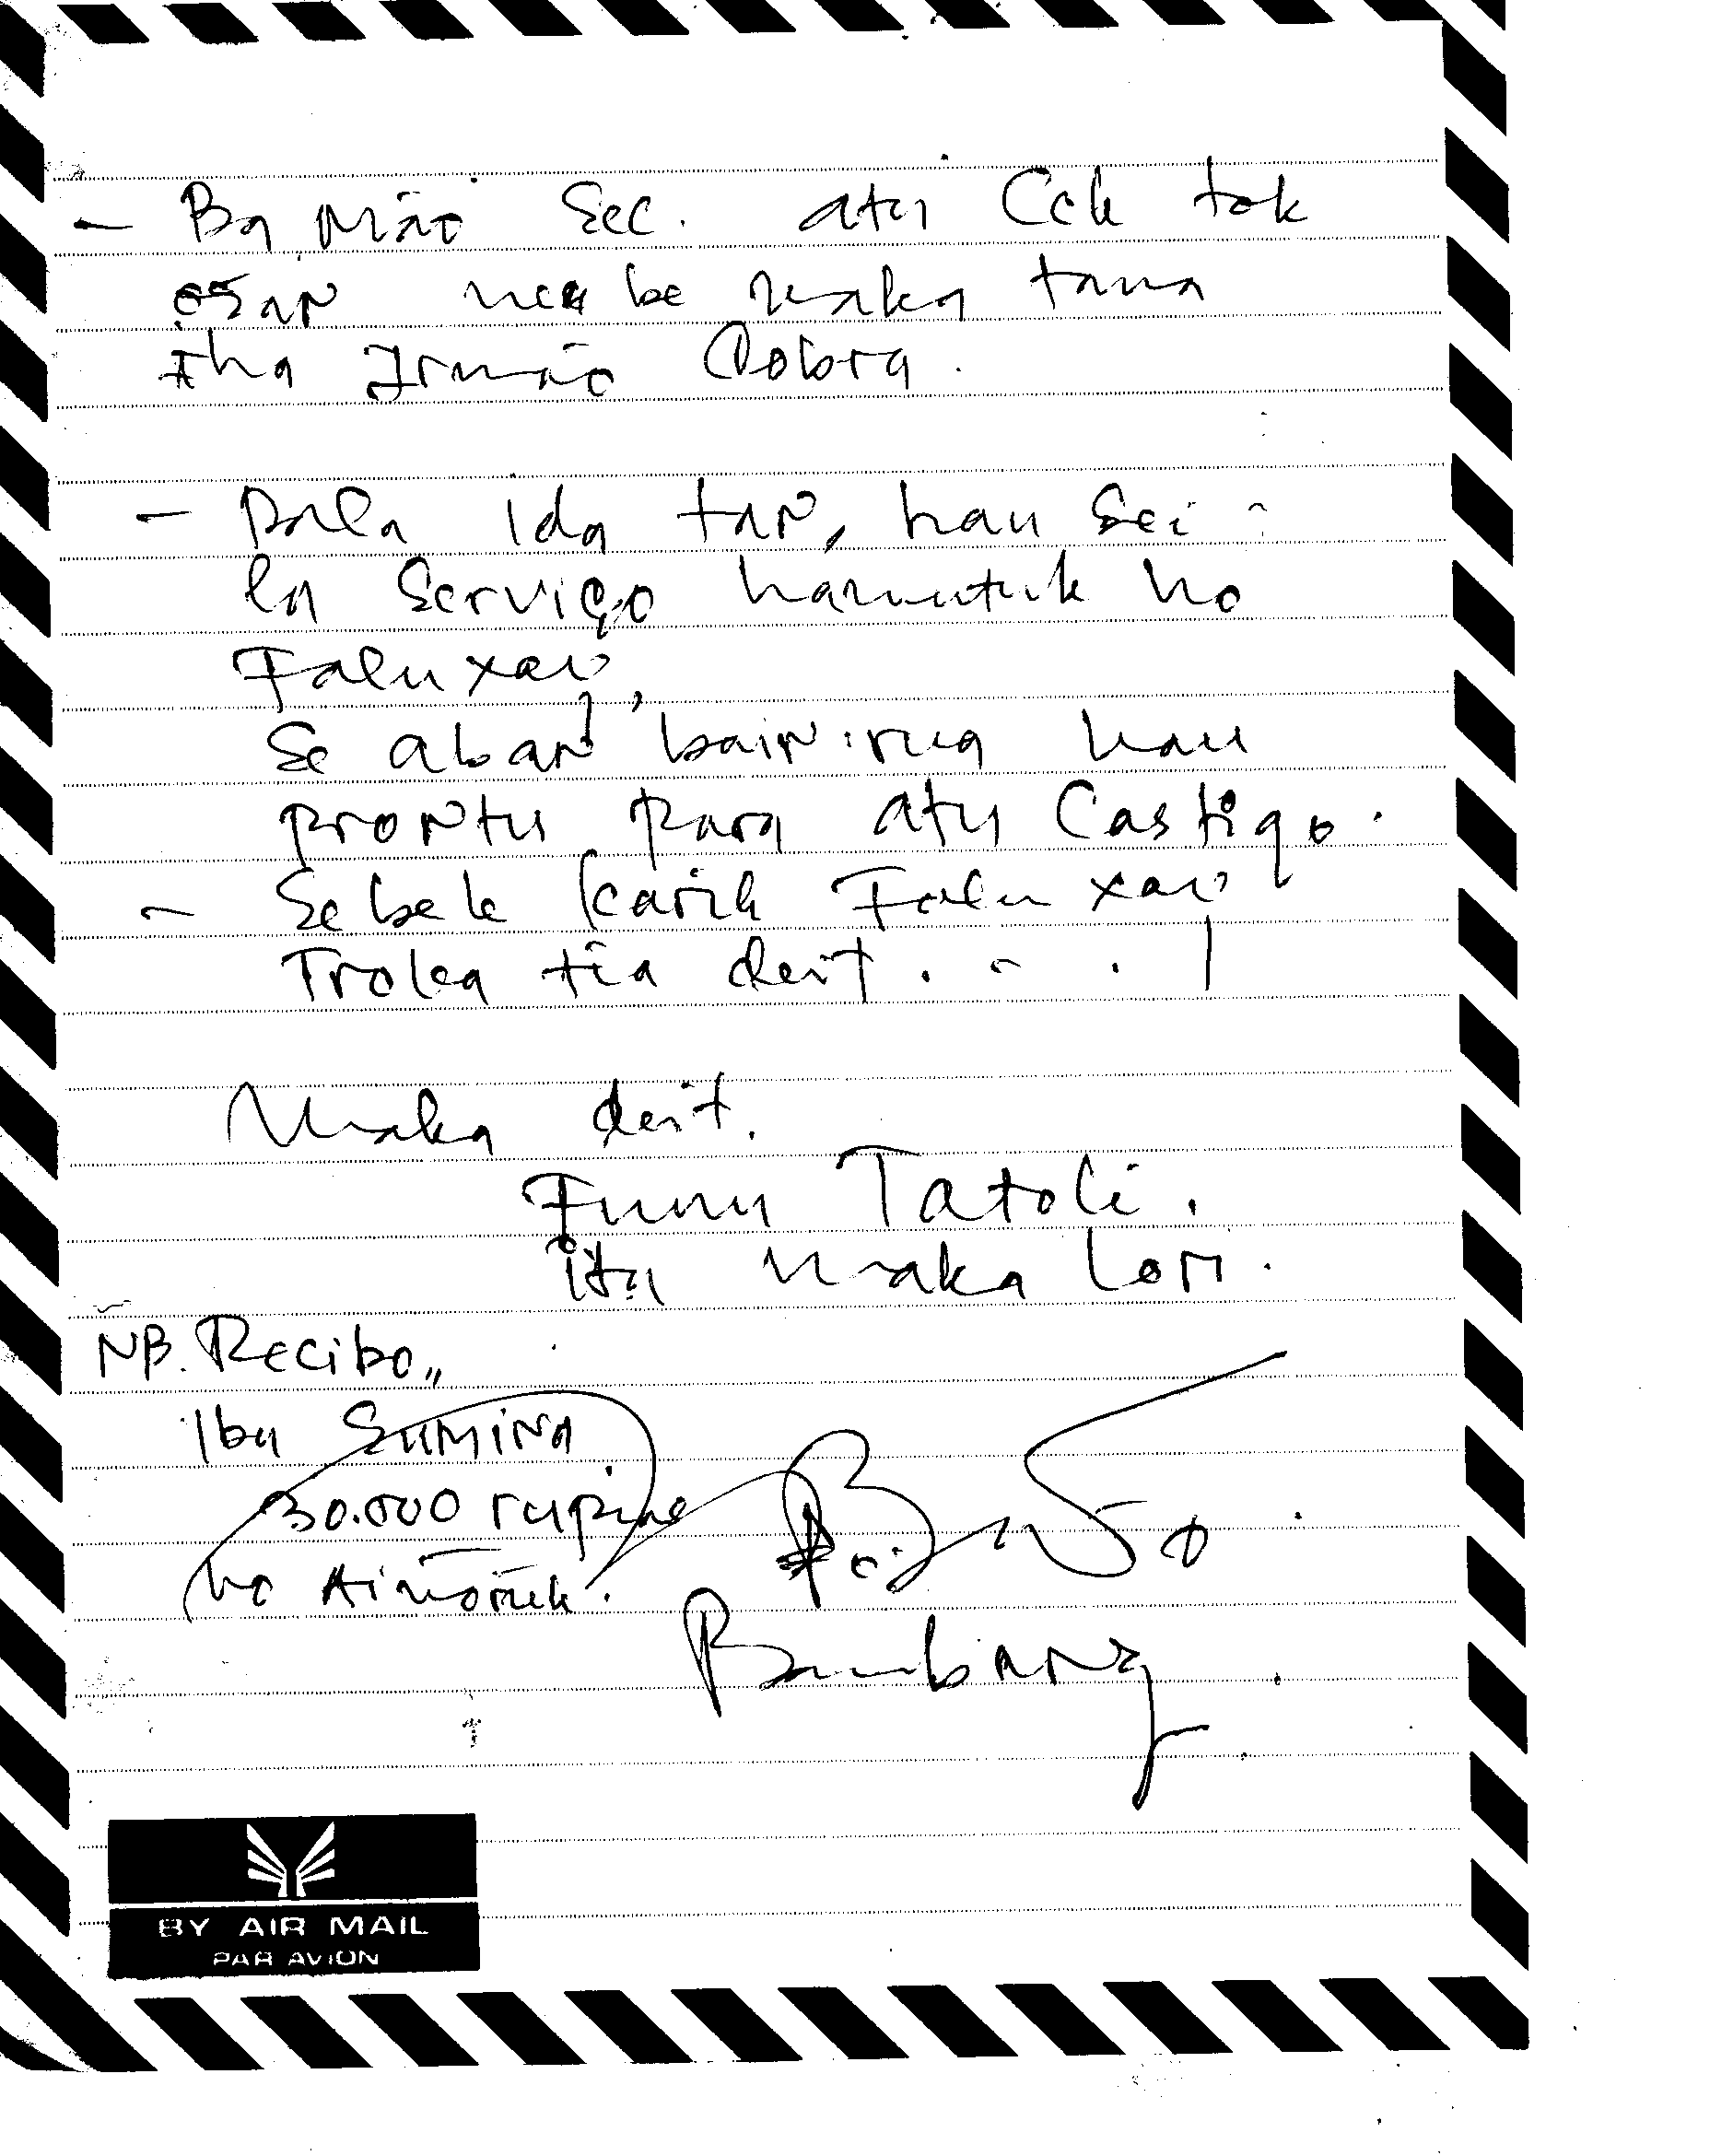 - Ba Mão Sec. atu Cek tok
osan neebe maka tama
iha Irmão Cobra.
- Dala Ida tan, hau sei
la Serviço hamutuk ho
Falu xav,
Se aban bainrua hau
prontu para atu Castigo.
- Se bele karik Falu xav
Troka tia deit . . . !
Maka deit.
Funu Tatoli.
ita maka lori.
NB. Recibo,,
Ibu SUMINA
30.000 rupias
ho Aimoruk.
Bambang
BY AIR MAIL
PAR AVION